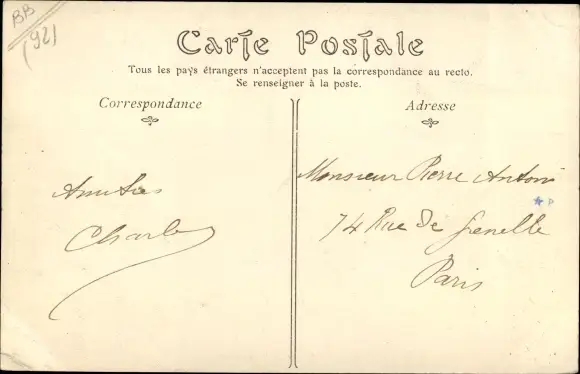 BB
(92)
Carte Postale
Tous les pays étrangers n'acceptent pas la correspondance au recto.
Se renseigner à la poste.
Correspondance
Amitiés
Charles
Adresse
Monsieur Pierre Antoni
74 Rue de Grenelle
Paris